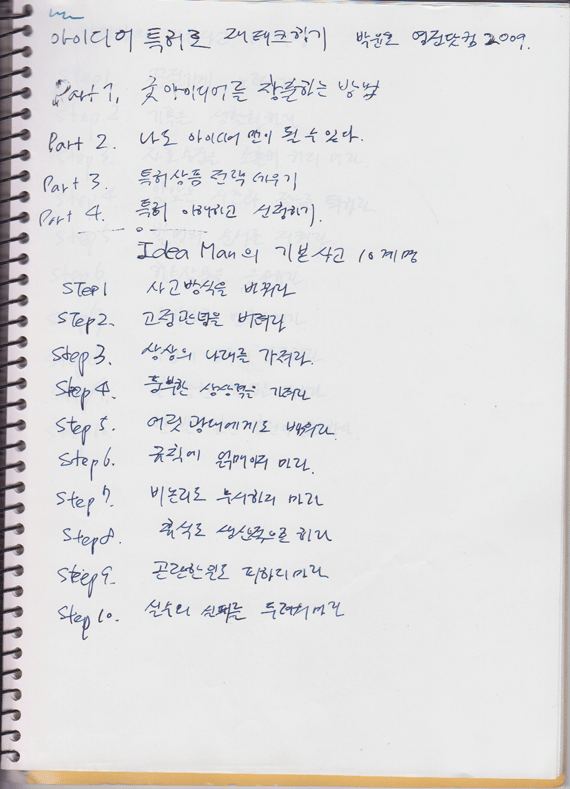 아이디어 특허로 재테크하기 박윤호 영진닷컴 2009.
Part 1, 굿아이디어를 창출하는 방법
Part 2. 나도 아이디어맨이 될 수 있다.
Part 3. 특허상품 전략 세우기
Part 4. 특허 이해하고 신청하기.
Idea Man의 기본사고 10계명
STEP1 사고방식을 바꿔라
STep2. 고정관념을 버려라
Step 3. 상상의 나래를 가져라.
Step 4. 풍부한 상상력을 가져라
Step 5. 어릿광대에게도 배워라
Step 6. 규칙에 얽매이지 마라.
Step 7. 비논리도 무시하지 마라
Step 8. 휴식도 생산적으로 하라
Step 9. 곤란한 일도 피하지마라
Step 10. 실수와 실패를 두려워마라